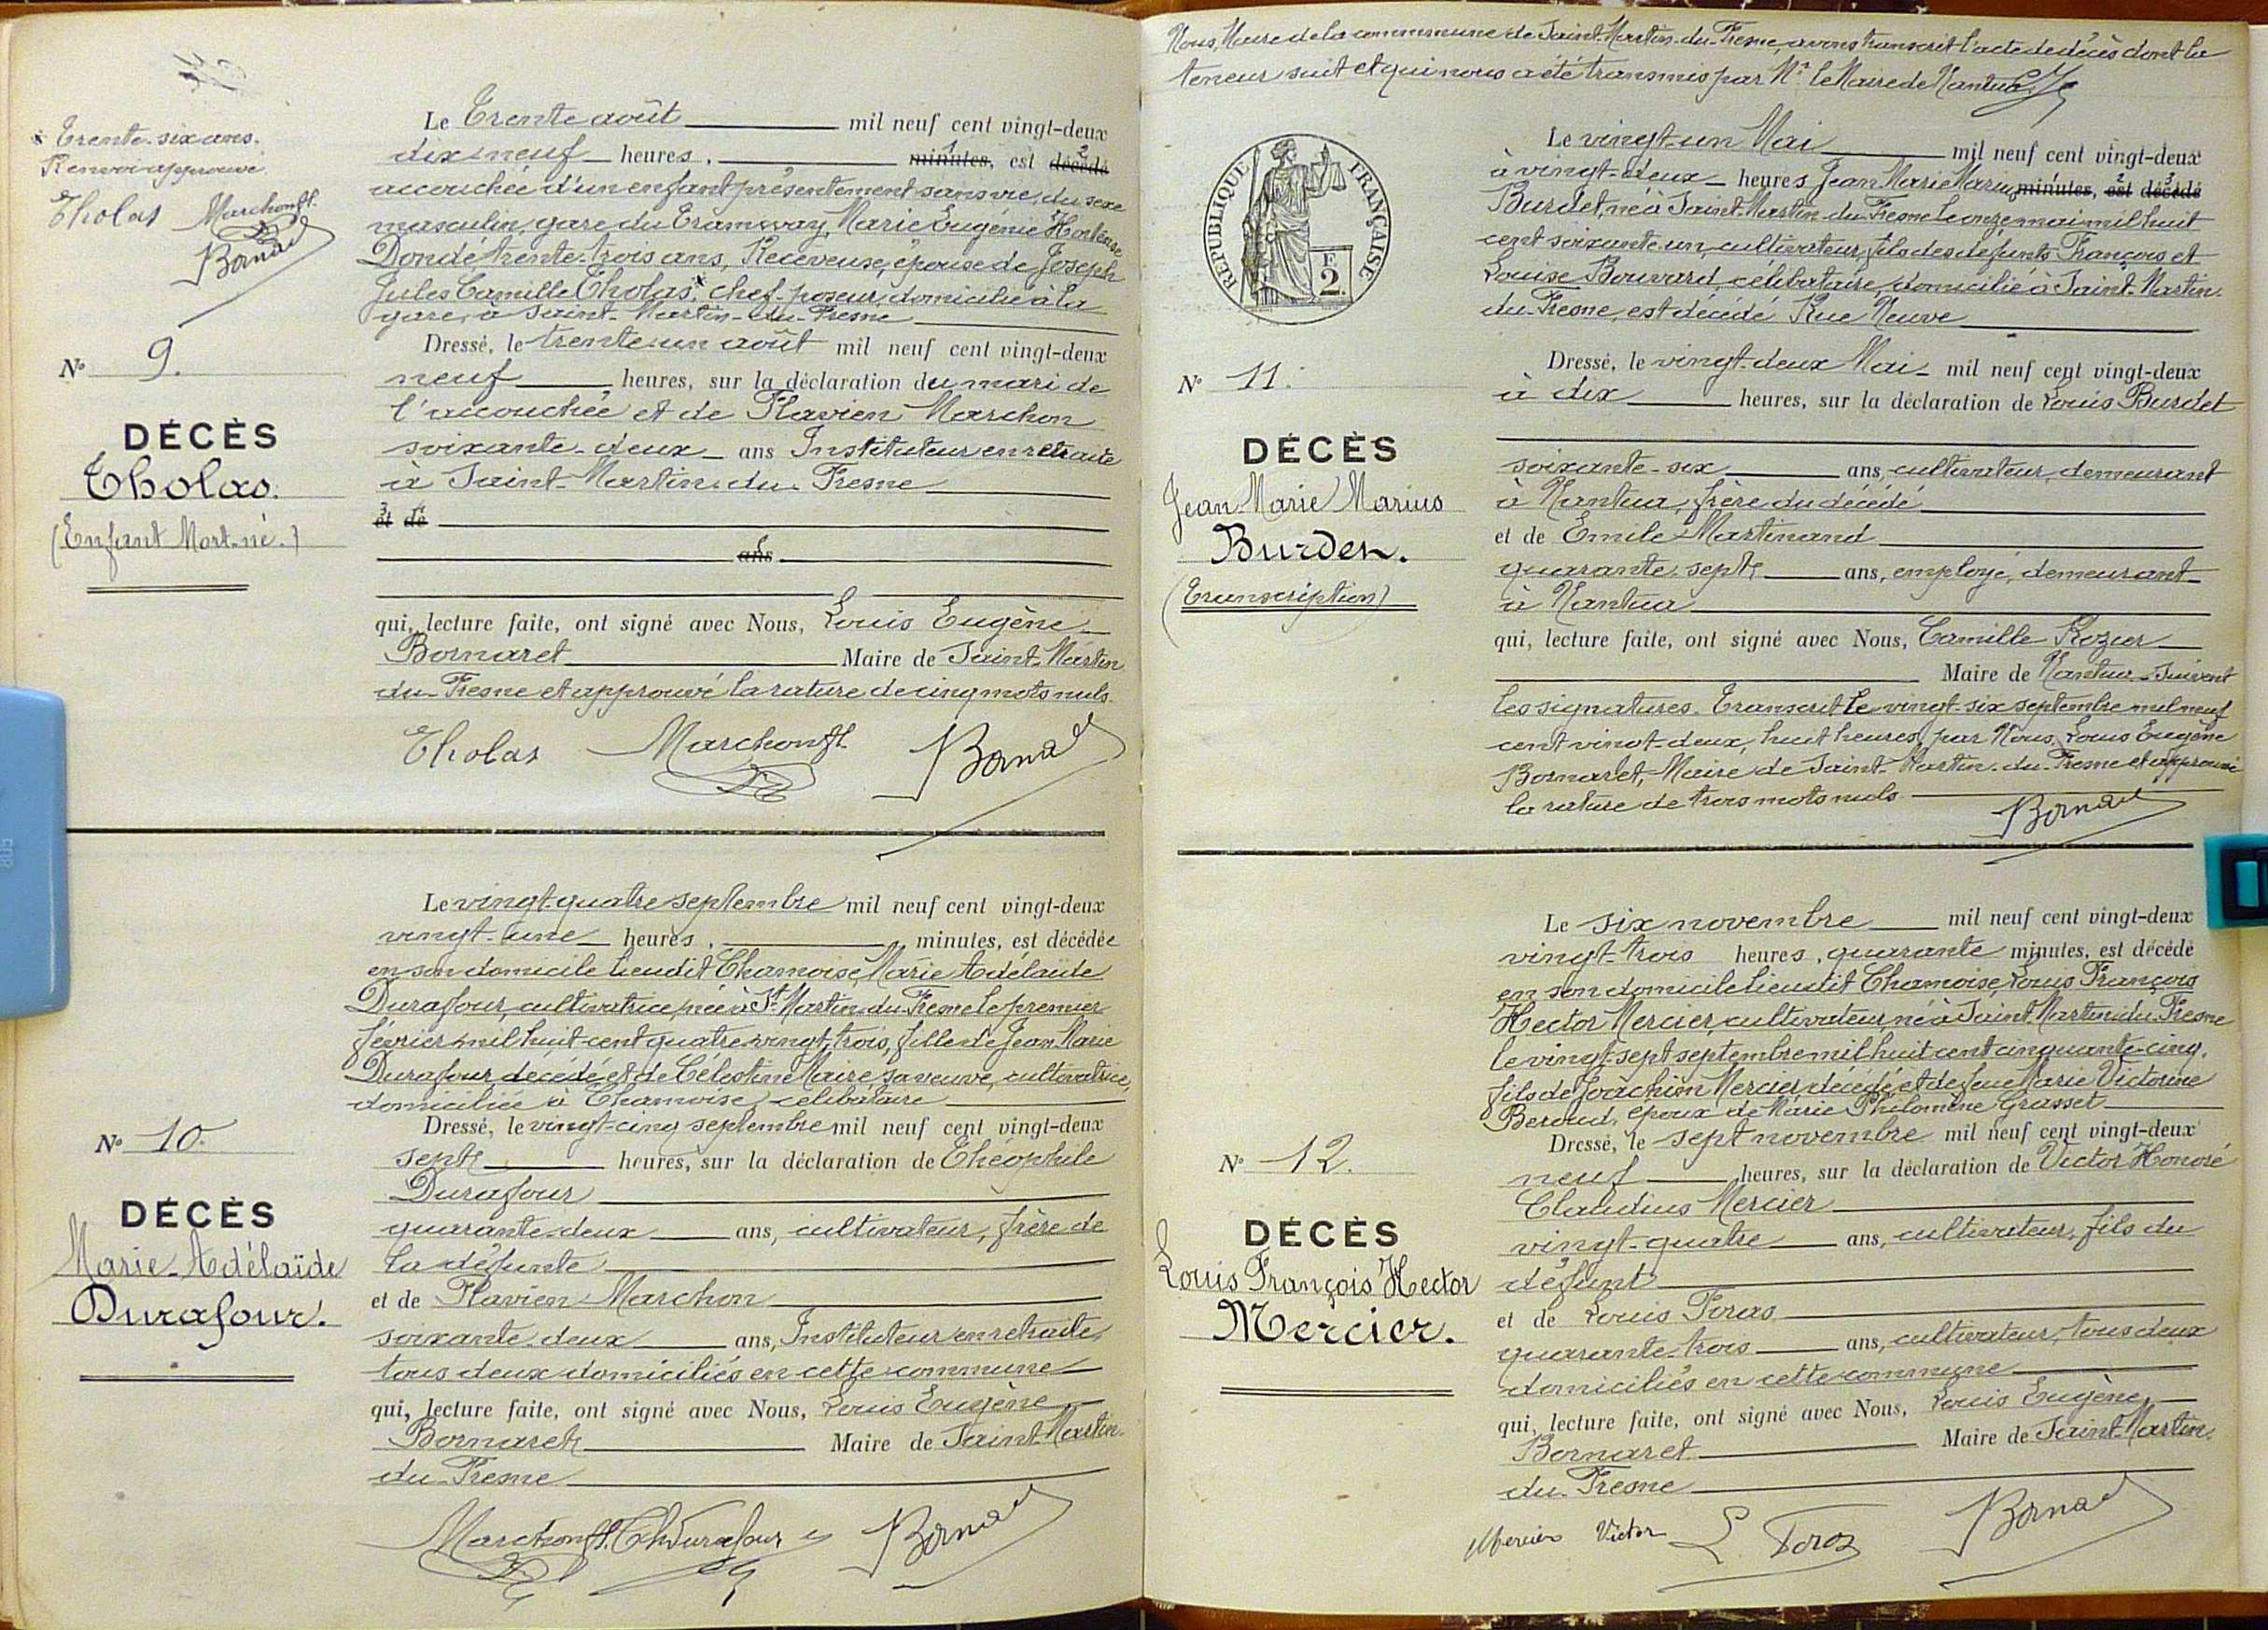 * Trente-six ans.
Renvoi approuvé.
Tholas Marchon fl.
Bornar
N° 9.
DÉCÈS
Tholas.
(Enfant Mort-né.)
Le Trente août mil neuf cent vingt-deux
dix-neuf heures, minutes, est décédé
accouchée d'un enfant présentement sans vie, du sexe
masculin, gare du Tramway, Marie Eugénie Hortense
Dondé, trente-trois ans, Receveuse, épouse de Joseph
Jules Camille Tholas,* chef-poseur, domicilié à la
gare, à Saint-Martin-du-Fresne
Dressé, le trente-un août mil neuf cent vingt-deux
neuf heures, sur la déclaration du mari de
l'accouchée et de Flavien Marchon
soixante-deux ans Instituteur en retraite
à Saint-Martin-du-Fresne
et de
ans
qui, lecture faite, ont signé avec Nous, Louis Eugène
Bornaret Maire de Saint-Martin
du-Fresne et approuvé la rature de cinq mots nuls.
Tholas Marchon fl. Bornar
N° 10.
DÉCÈS
Marie-Adélaïde
Durafour.
Le vingt-quatre septembre mil neuf cent vingt-deux
vingt-une heures, minutes, est décédée
en son domicile lieudit Chamoise, Marie Adélaïde
Durafour, cultivatrice, née à St-Martin-du-Fresne le premier
février mil huit cent quatre-vingt-trois, fille de Jean Marie
Durafour décédé et de Célestine Maire, sa veuve, cultivatrice,
domiciliée à Chamoise, célibataire
Dressé, le vingt-cinq septembre mil neuf cent vingt-deux
sept heures, sur la déclaration de Théophile
Durafour
quarante-deux ans, cultivateur, frère de
la défunte
et de Flavien Marchon
soixante-deux ans, Instituteur en retraite,
tous deux domiciliés en cette commune
qui, lecture faite, ont signé avec Nous, Louis Eugène
Bornaret Maire de Saint-Martin-
du-Fresne
Marchon fl. Th Durafour Bornar
Nous, Maire de la commune de Saint-Martin-du-Fresne, avons transcrit l'acte de décès dont la
teneur suit et qui nous a été transmis par Mr le Maire de Nantua.
RÉPUBLIQUE FRANÇAISE
2 F.
N° 11.
DÉCÈS
Jean Marie Marius
Burdet.
(Transcription)
Le vingt-un Mai mil neuf cent vingt-deux
à vingt-deux heures Jean Marie Marius minutes, est décédé
Burdet, né à Saint-Martin-du-Fresne le onze mai mil huit
cent soixante-un, cultivateur, fils des défunts François et
Louise Bouvard, célibataire, domicilié à Saint-Martin-
du-Fresne, est décédé Rue Neuve
Dressé, le vingt-deux Mai mil neuf cent vingt-deux
à dix heures, sur la déclaration de Louis Burdet
soixante-six ans, cultivateur, demeurant
à Nantua, frère du décédé
et de Emile Martinand
quarante-sept ans, employé, demeurant
à Nantua
qui, lecture faite, ont signé avec Nous, Camille Rozier
Maire de Nantua. Suivent
les signatures. Transcrit le vingt-six septembre mil neuf
cent vingt-deux, huit heures, par Nous, Louis Eugène
Bornaret, Maire de Saint-Martin-du-Fresne et approuvé
la rature de trois mots nuls
Bornar
N° 12.
DÉCÈS
Louis François Hector
Mercier.
Le six novembre mil neuf cent vingt-deux
vingt-trois heures, quarante minutes, est décédé
en son domicile lieudit Chamoise, Louis François
Hector Mercier, cultivateur, né à Saint-Martin-du-Fresne
le vingt-sept septembre mil huit cent cinquante-cinq,
fils de Joachim Mercier, décédé et de feue Marie Victorine
Beroud, époux de Marie Philomène Grasset
Dressé, le sept novembre mil neuf cent vingt-deux
neuf heures, sur la déclaration de Victor Honoré
Claudius Mercier
vingt-quatre ans, cultivateur, fils du
défunt
et de Louis Foras
quarante-trois ans, cultivateur, tous deux
domiciliés en cette commune
qui, lecture faite, ont signé avec Nous, Louis Eugène
Bornaret Maire de Saint-Martin-
du-Fresne
Mercier Victor L. Foras Bornar